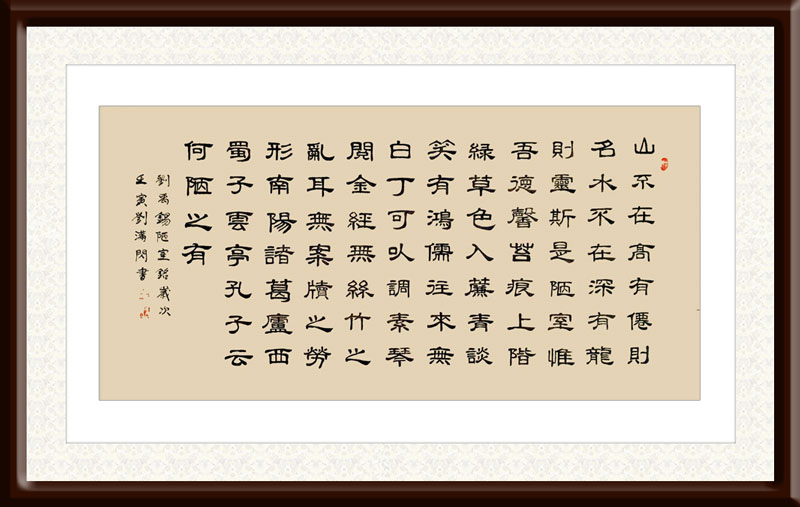 山不在高有僊則
名水不在深有龍
則靈斯是陋室惟
吾德馨苔痕上階
綠草色入簾青談
笑有鴻儒往來無
白丁可以調素琴
閱金經無絲竹之
亂耳無案牘之勞
形南陽諸葛廬西
蜀子雲亭孔子云
何陋之有
劉禹錫陋室銘歲次
壬寅劉滿閃書